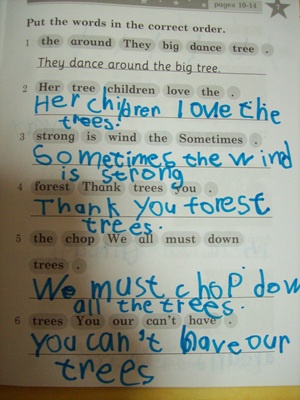 pages 10-14
Put the words in the correct order.
1 the around They big dance tree .
They dance around the big tree.
2 Her tree children love the .
Her children love the
trees.
3 strong is wind the Sometimes .
Sometimes the wind
is strong
4 forest Thank trees you .
Thank you forest
trees.
5 the chop We all must down
trees .
We must chop dow
all the trees.
6 trees You our can't have .
you can't have our
trees